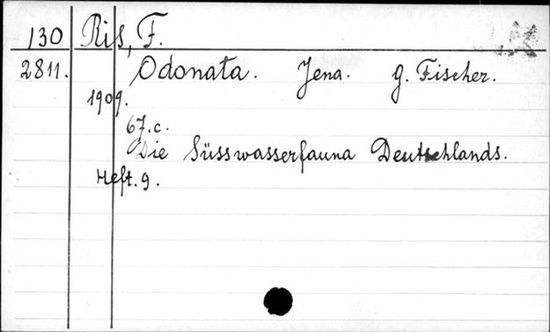 130 Ris, F.
2811. Odonata. Jena. G. Fischer.
1909.
67.c.
Die Süsswasserfauna Deutschlands.
Heft. 9.